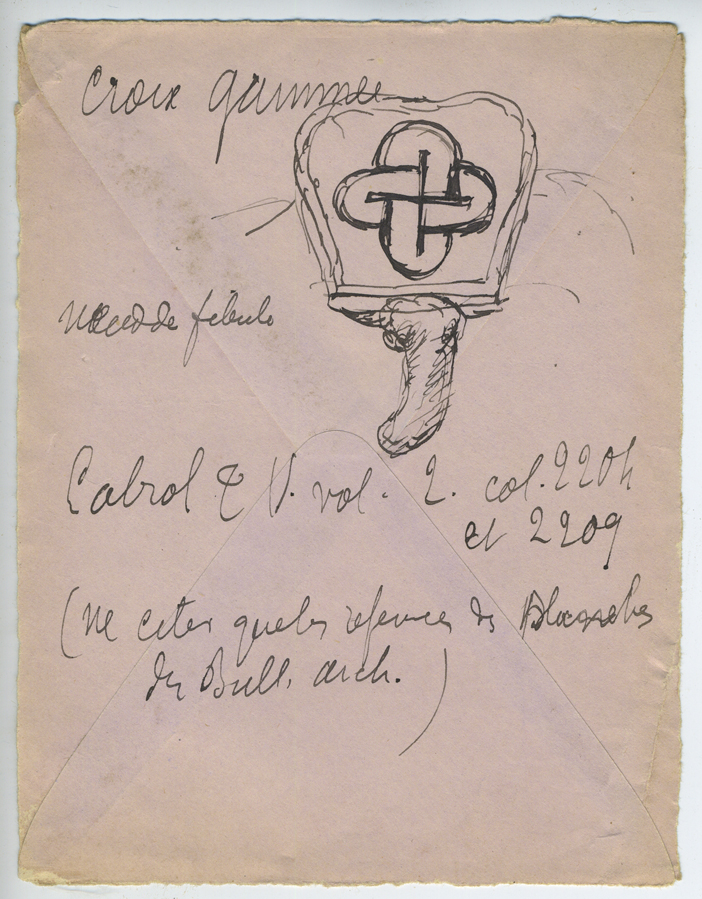 Croix gammée
de fibule
Cabrol & V. vol. 2. col. 2204
et 2209
(ne citer que les references des
du Bull. arch.)